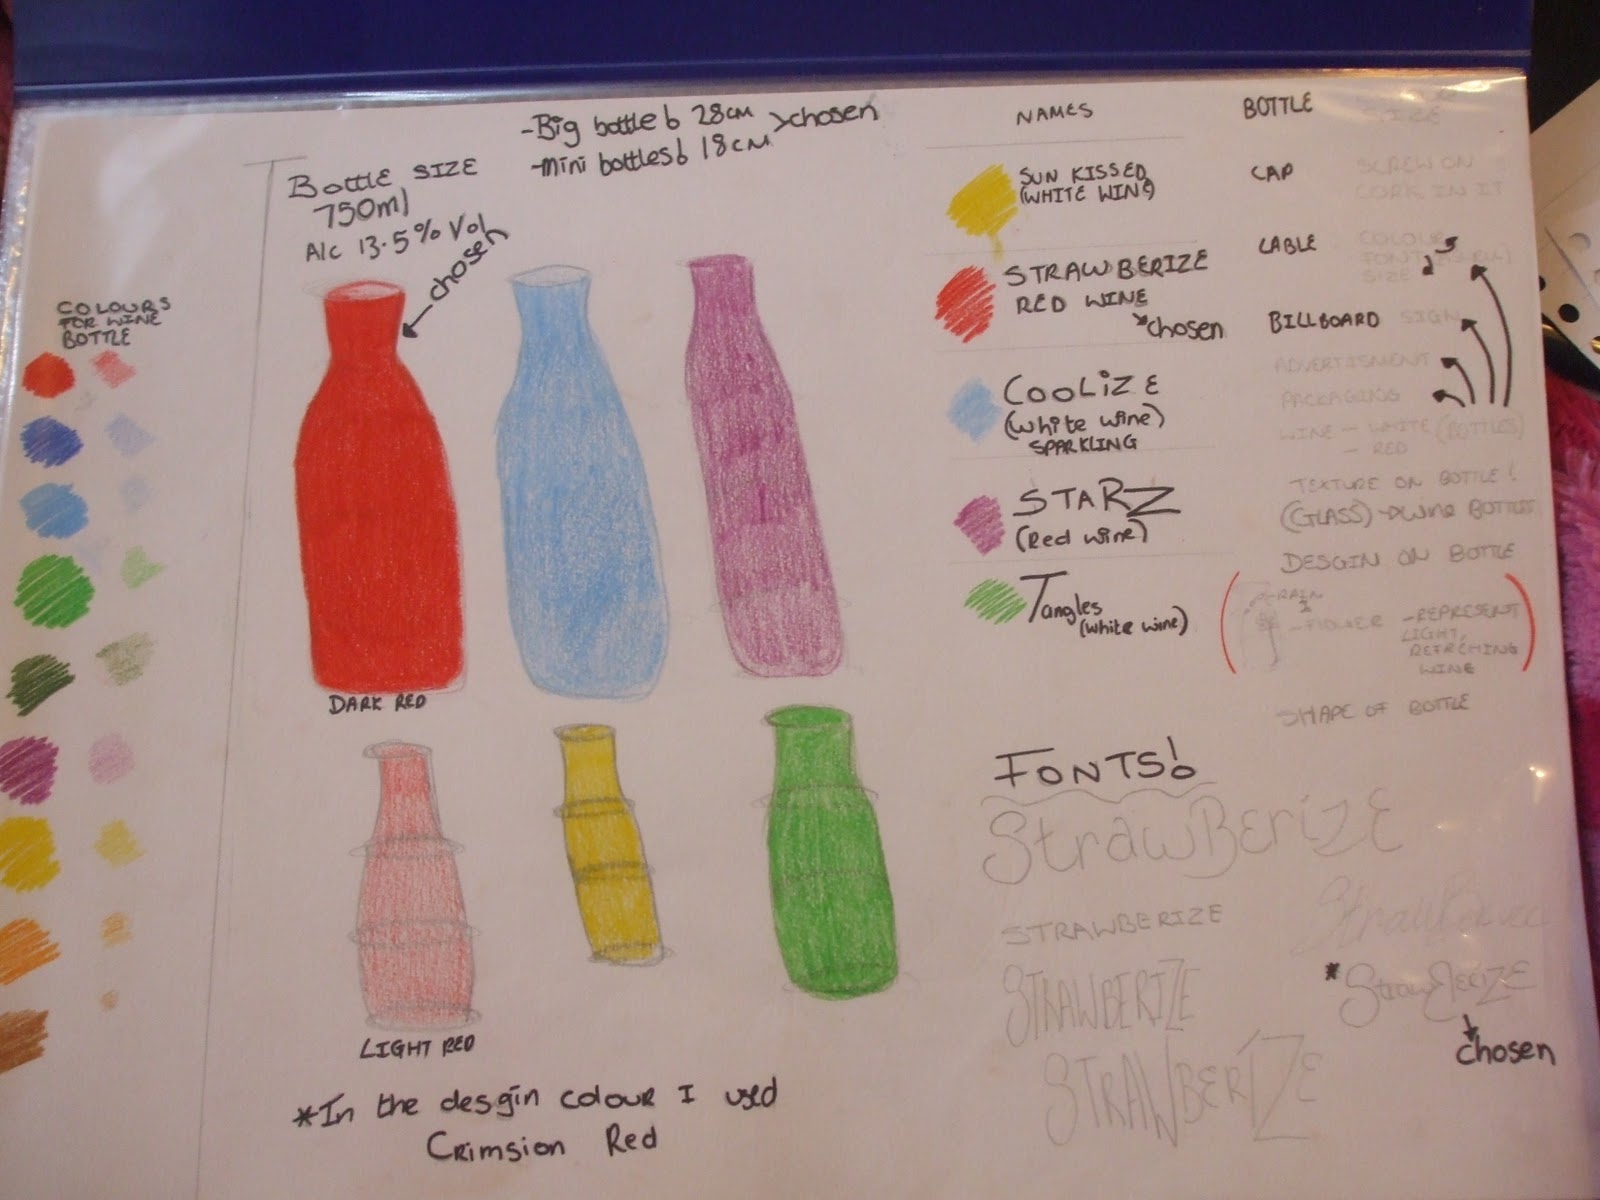 -Big bottle 6 28cm >chosen
-mini bottles 6 18cm
Bottle SIZE
750ml
Alc 13.5% Vol
chosen
COLOURS
FOR WINE
BOTTLE
DARK RED
LIGHT RED
*In the desgin colour I used
Crimsion Red
NAMES
SUN KISSED
(WHITE WINE)
STRAWBERIZE
RED WINE
*chosen
COOLIZE
(white wine)
SPARKLING
STARZ
(Red wine)
Tangles
(white wine)
BOTTLE SIZE
CAP SCREW ON
CORK IN IT
LABLE COLOUR
FONT
SIZE
BILLBOARD SIGN
ADVERTISMENT
PACKAGING
WINE - WHITE (BOTTLES)
- RED
TEXTURE ON BOTTLE!
(GLASS) → WINE BOTTLES
DESGIN ON BOTTLE
RAIN
- FLOWER - REPRESENT
LIGHT,
REFRECHING
WINE
SHAPE OF BOTTLE
FONTS!
StrawBerizE
STRAWBERIZE
STRAWBERIZE
STRAWBERIZE
*StrawBerizE
chosen